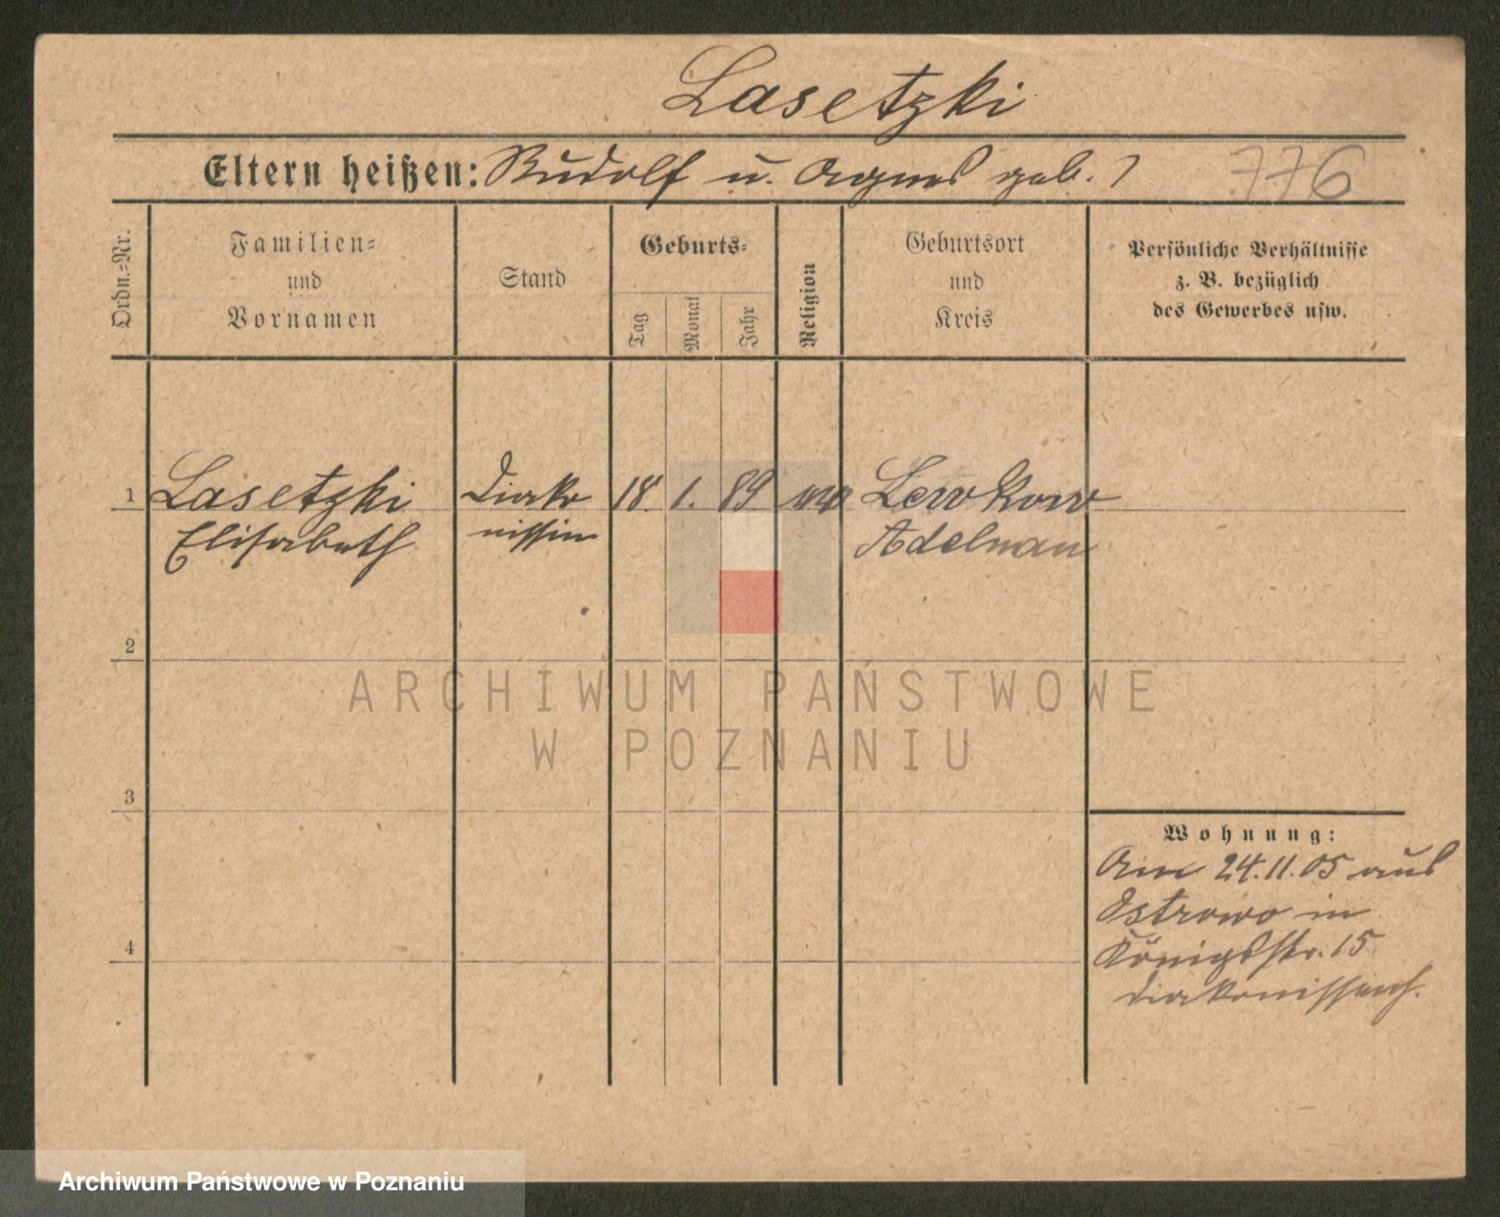 Lasetzki
Eltern heißen: Rudolf u. Agnes geb. ?
776
Ordn.-Nr.
Familien-
und
Vornamen
Stand
Geburts-
Tag
Monat
Jahr
Religion
Geburtsort
und
Kreis
Persönliche Verhältnisse
z. B. bezüglich
des Gewerbes usw.
1 Lasetzki Diako 18. 1. 89 Lewkow
Elisabeth nissin Adelnau
2
ARCHIWUM PAŃSTWOWE
W POZNANIU
3
Wohnung:
Am 24.11.05 aus
Ostrowo in
4
Königsstr. 15
Diakonissenh.
Archiwum Państwowe w Poznaniu